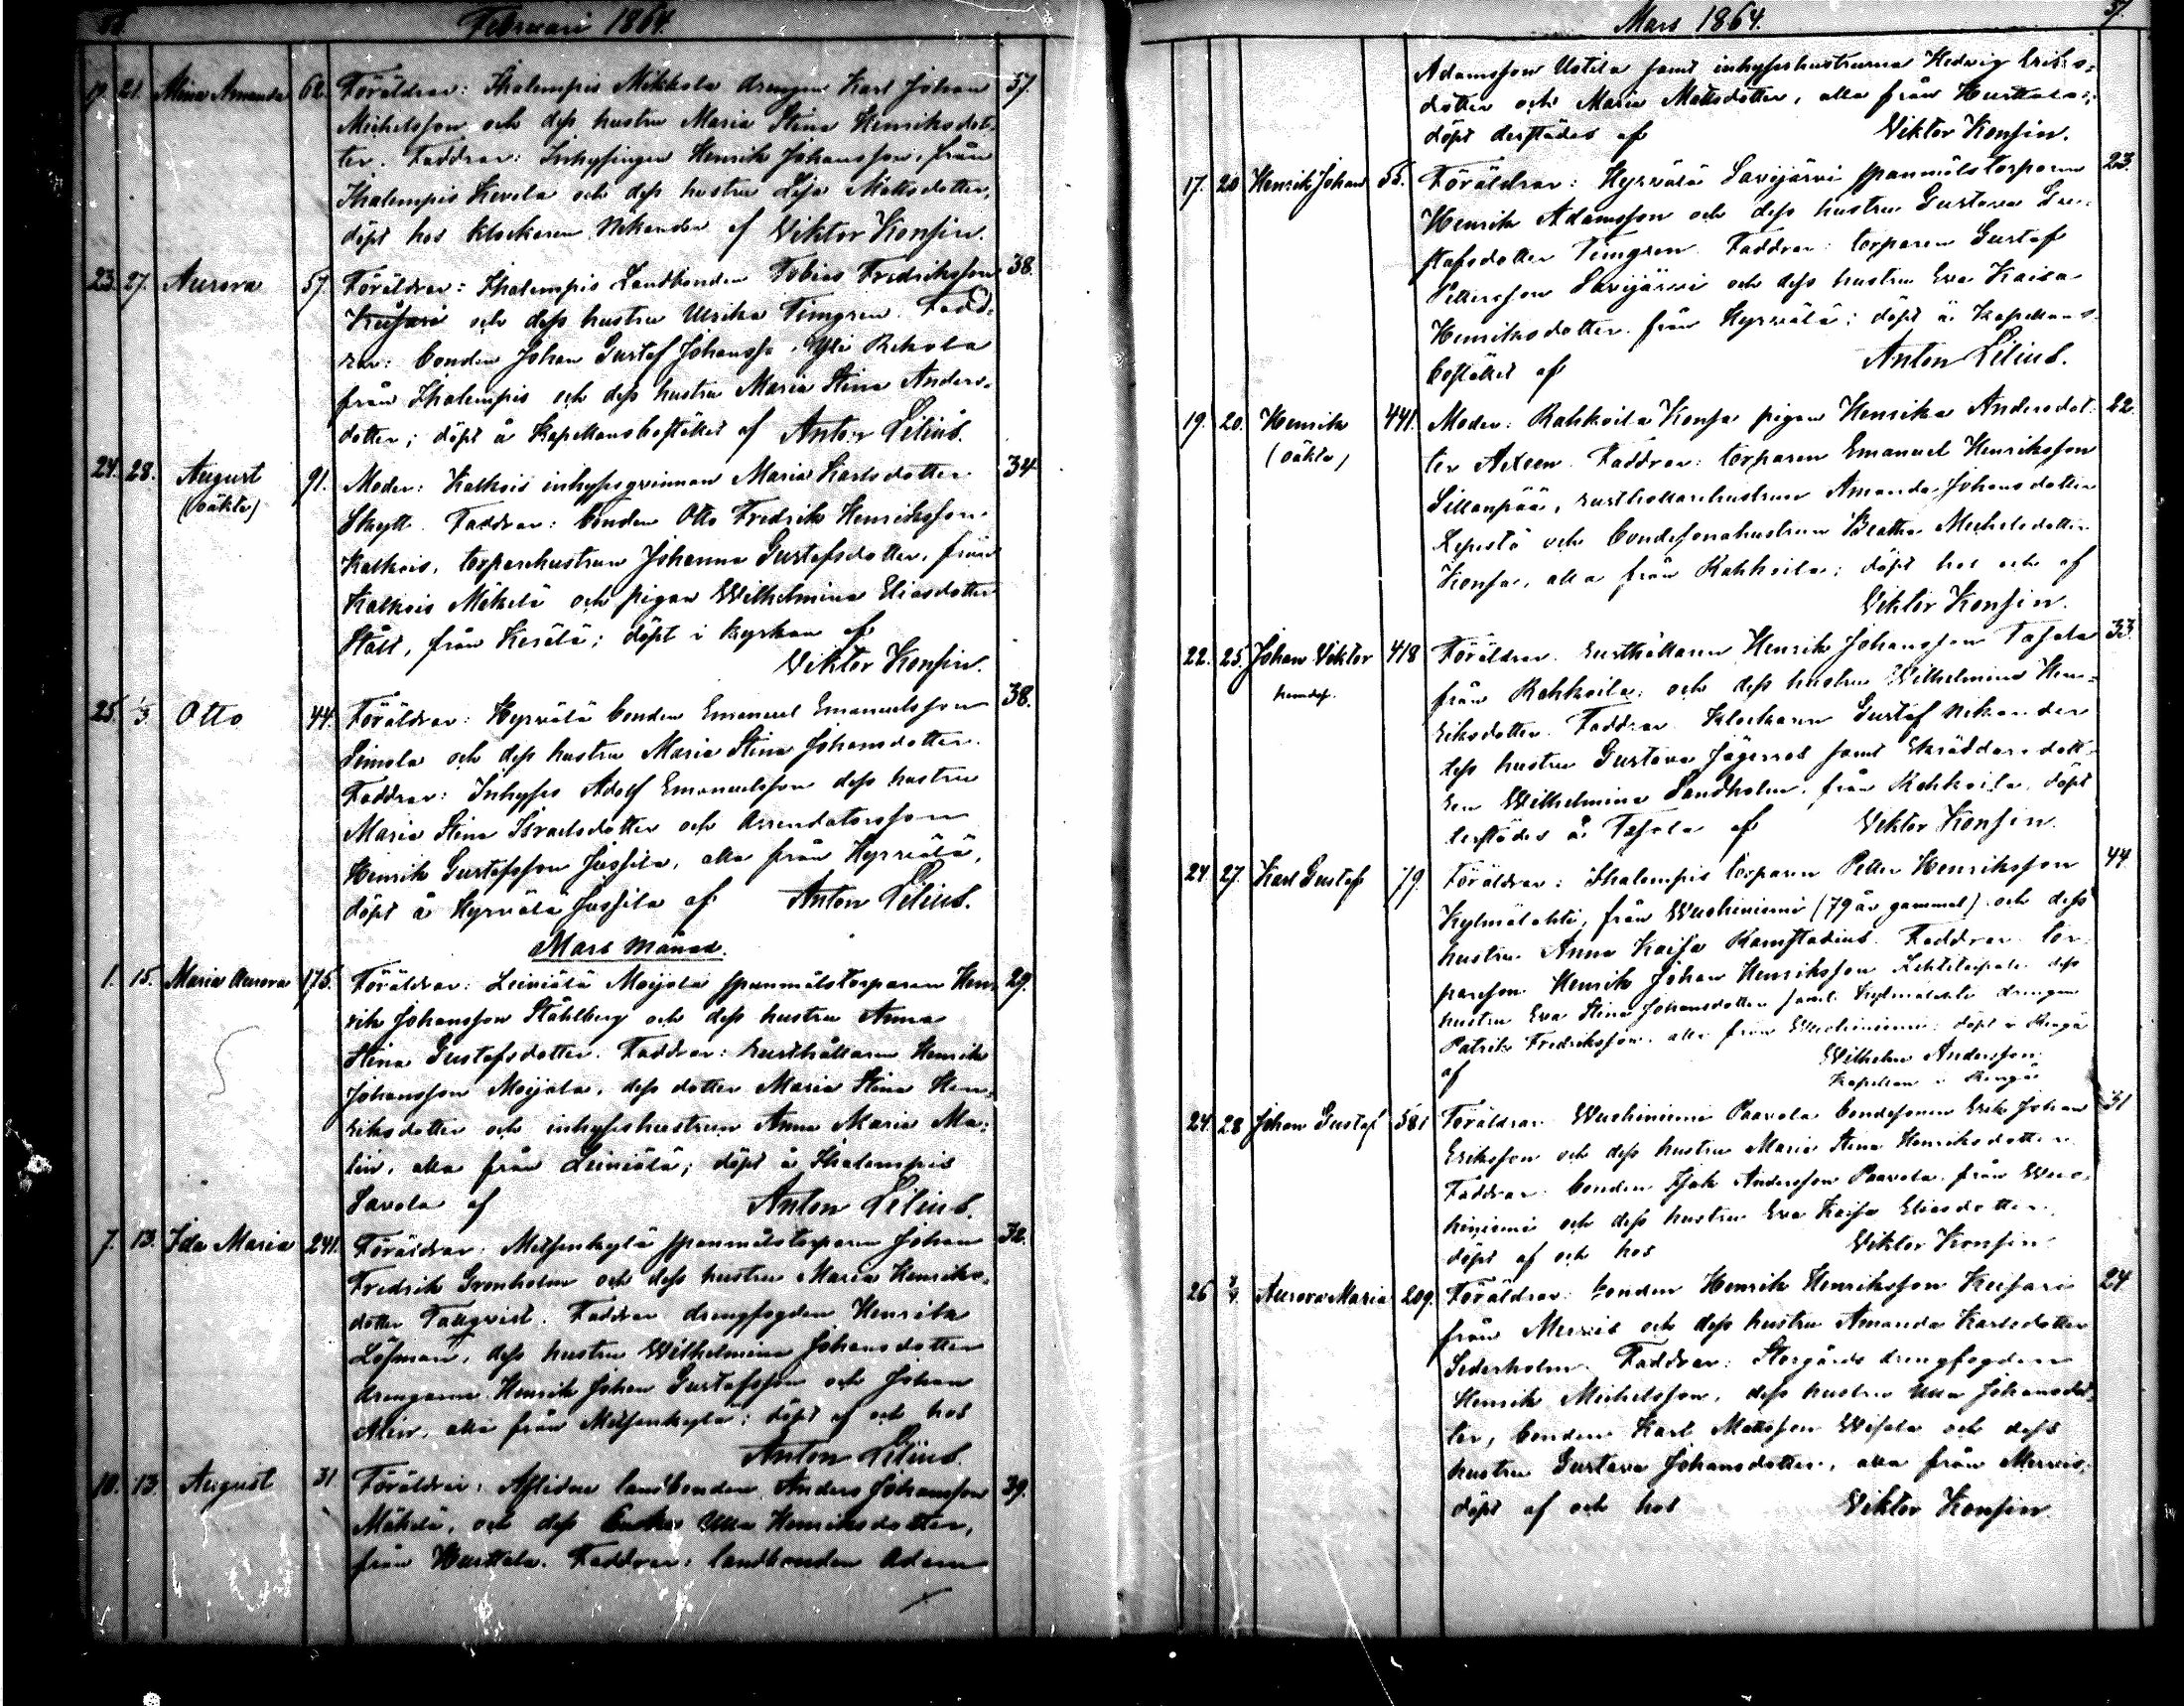 Februari 1864.
21. Mina Amanda 62. Föräldrar: Ihalempis Mikkola drengen Karl Johan 37.
Michelsson och dess hustru Maria Stina Henriksdot-
ter. Faddrar: Inhysingen Henrik Johansson, från
Ihalempis Kevola och dess hustru Lisa Mattsdotter,
döpt hos klockaren Nikander af Viktor Konsin.
23. 27. Aurora 57. Föräldrar: Ihalempis Landbonden Tobias Fredriksson 38.
och dess hustru Ulrika Timgren. Fadd-
rar: bonden Johan Gustaf Johansso. Yli Rekola
från Ihalempis och dess hustru Maria Stina Anders-
dotter; döpt å Kapellansbostället af Anton Lilius.
24. 28. August 91. Moder: Kalkois inhysesqvinnan Maria Karlsdotter 34
(oäkta) Skytt. Faddrar: bonden Otto Fredrik Henriksson
Kalkois, torparehustrun Johanna Gustafsdotter, från
Kalkois Mäkelä och pigan Wilhelmina Eliasdotter
Ståll, från Kerälä; döpt i kyrkan af
Viktor Konsin.
25. 1/3 Otto 44. Föräldrar: Hyrvälä bonden Emanuel Emanuelsson 38.
Simola och dess hustru Maria Stina Johansdotter.
Faddrar: Inhyses Adolf Emanuelsson dess hustru
Maria Stina Israelsdotter och Arrendatorsson
Henrik Gustafsson Jussila, alla från Hyrvälä,
döpt å Hyrvälä Jussila af Anton Lilius.
Mars Månad.
1. 15. Maria Aurora 175. Föräldrar: Leiniälä Moijala spanmålstorparen Hen- 29.
rik Johansson Ståhlberg och dess hustru Anna
Stina Gustafsdotter. Faddrar: Rusthållaren Henrik
Johansson Moijala, dess dotter Maria Stina Hen-
riksdotter och inhyseshustrun Anna Maria Ma-
lin, alla från Leiniälä; döpt å Ihalempis
Savola af Anton Lilius.
7. 13. Ida Maria 241. Föräldrar: Miehenkylä spanmålstorparen Johan 32.
Fredrik Grönholm och dess hustru Maria Henriks-
dotter Tallqvist. Faddrar drengfogden Henrik
Löfman, dess hustru Wilhelmina Johansdotter
drengarne Henrik Johan Gustafsson och Johan
alla från Miehenkylä; döpt af och hos
Anton Lilius.
10. 13. August 31 Föräldrar: Aflidne landbonden Anders Johansson 39.
Mäkelä, och dess Enka Ulla Henriksdotter,
från Hurttala. Faddrar: landbonden Adam
Mars 1864. 57.
Adamsson Uotila samt inhyseshustrurna Hedvig Eriks-
dotter och Maria Mattsdotter, alla från Hurttala;
döpt derstädes af Viktor Konsin.
17. 20 Henrik Johan 55. Föräldrar: Hyrvälä Savijärvi spanmålstorparen 23.
Henrik Adamsson och dess hustru Gustava Gu-
stafsdotter Timgren. Faddrar: torparen Gustaf
Pettersson Savijärvi och dess hustru Eva Kaisa
Henriksdotter från Hyrvälä; döpt å Kapellans-
bostället af Anton Lilius.
19. 20. Henrik 441. Moder: Rahkoila Konsa pigan Henrika Andersdot- 22.
(oäkta) ter Faddrar: torparen Emanuel Henriksson
Sillanpää, rusthållarehustrun Amanda Johansdotter
Lepistö och bondesonshustrun Beatha Michelsdotter
Konsa, alla från Rahkoila; döpt hos och af
Viktor Konsin.
22. 25. Johan Viktor 418 Föräldrar. rusthållaren Henrik Johansson Tasala 33.
från Rahkoila och dess hustru Wilhelmina Hen-
riksdotter. Faddrar Klockaren Gustaf Nikander
dess hustru Gustava Jägerros samt Skräddaredott-
ren Wilhelmina Sandholm, från Rahkoila, döpt
derstädes å Tasala af Viktor Konsin.
24. 27. Karl Gustaf 79. Föräldrar: Ihalempis torparen Petter Henriksson 44
Kylmälahti, från Wuohiniemi (79 år gammal) och dess
hustru Anna Kaisa Ramstadius. Faddrar tor-
pareson Henrik Johan Henriksson dess
hustru Eva Stina Johansdotter samt Kylmälahti drengen
Patrik Fredriksson, alla från Wuohiniemi; döpt i Rengä
af Wilhelm Andersson.
Kapellan i Rengå
24. 28 Johan Gustaf 581 Föräldrar Wuohiniemi Paavola bondesonen Erik Johan 31
Eriksson och dess hustru Maria Stina Henriksdotter.
Faddrar: bonden Isak Andersson Paavola från Wuo-
hiniemi och dess hustru Eva Kaisa Eliasdotter.
döpt af och hos Viktor Konsin
26 Aurora Maria 209. Föräldrar: bonden Henrik Henriksson Keisari 24
från Mervis och dess hustru Amanda Karlsdotter
Sederholm. Faddrar: Storgårds drengfogden
Henrik Michelsson, dess hustru Ulla Johansdot-
ter, bonden Karl Mattsson och dess
hustru Gustava Johansdotter, alla från Mervis;
döpt af och hos Viktor Konsin.